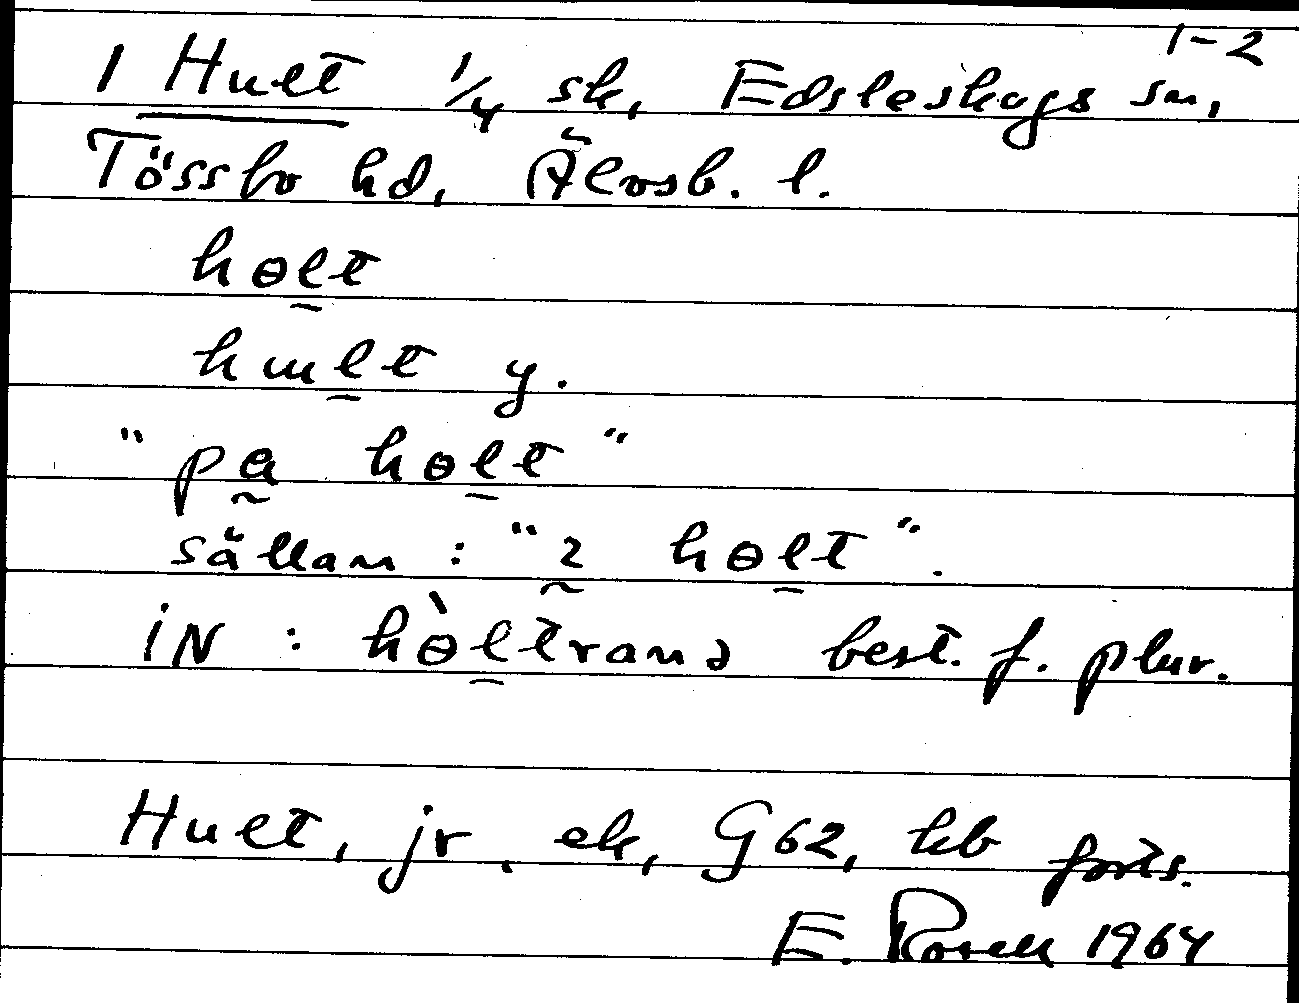 1-2
1 Hult 1/4 sk, Edsleskogs sn,
Tössbo hd, Älvsb. l.
hɵl̰t
hɯl̰t y.
"pa̰ hɵl̰t"
sällan: "ḭ hɵl̰t".
iN: hɵ̀l̰trana best. f. plur.
Hult, jr. ek, G62, hb forts.
E. Rosell 1964